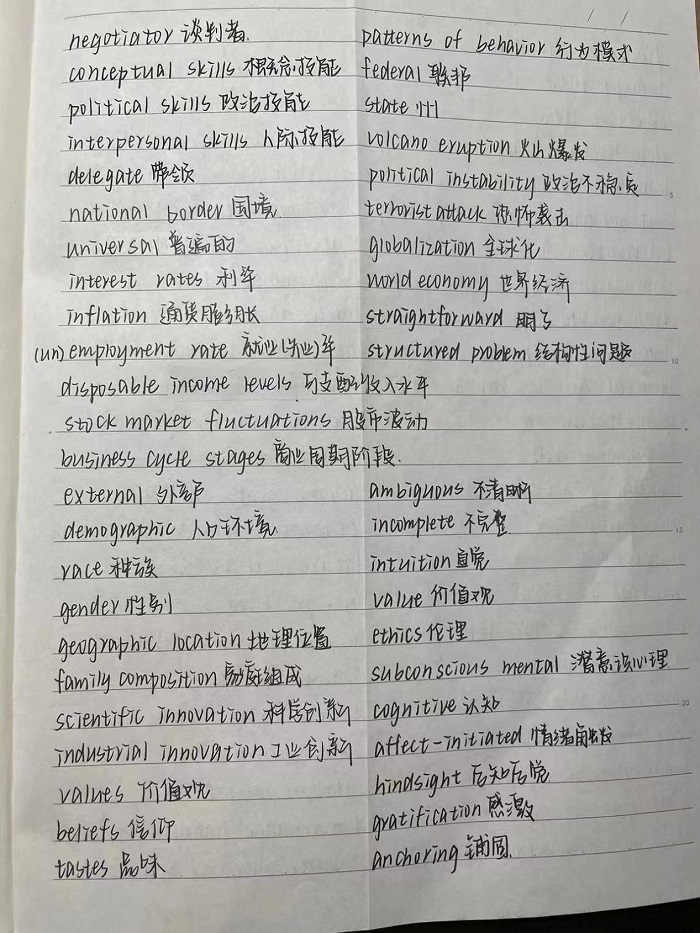 negotiator 谈判者.
conceptual skills 概念技能
political skills 政治技能
interpersonal skills 人际技能
delegate 带领
national border 国境
universal 普遍的
interest rates 利率
inflation 通货膨胀
(un) employment rate 就业(失业)率
disposable income levels 可支配收入水平
stock market fluctuations 股市波动
business cycle stages 商业周期阶段.
external 外部
demographic 人口环境
race 种族
gender 性别
geographic location 地理位置
family composition 家庭组成
scientific innovation 科学创新
industrial innovation 工业创新
values 价值观
beliefs 信仰
tastes 品味
patterns of behavior 行为模式
federal 联邦
state 州
volcano eruption 火山爆发
political instability 政治不稳定
terrorist attack 恐怖袭击
globalization 全球化
world economy 世界经济
straightforward 明了
structured problem 结构性问题
ambiguous 不清晰
incomplete 不完整
intuition 直觉
value 价值观
ethics 伦理
subconscious mental 潜意识心理
cognitive 认知
affect-initiated 情绪触发
hindsight 后知后觉
gratification 感激
anchoring 锚固